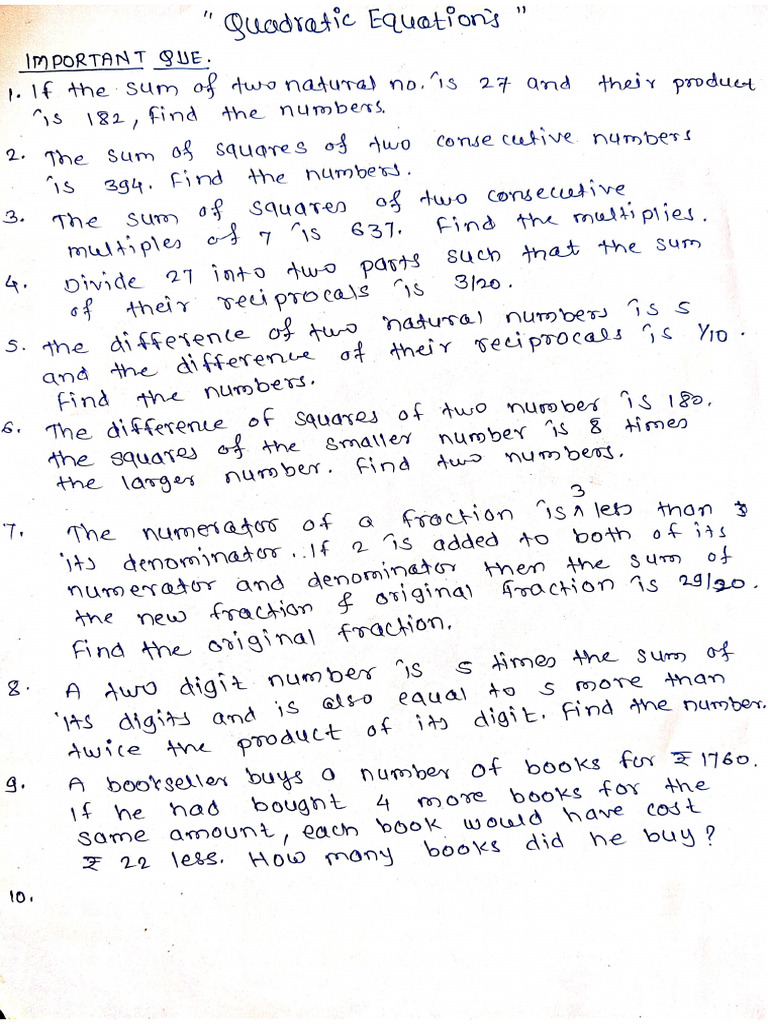 " Quadratic Equations "
IMPORTANT QUE.
1. If the sum of two natural no. is 27 and their product
is 182, find the numbers.
2. The sum of squares of two consecutive numbers
is 394. Find the numbers.
3. The sum of squares of two consecutive
multiples of 7 is 637. Find the multiplies.
4. Divide 27 into two parts such that the sum
of their reciprocals is 3/20.
5. the difference of two natural numbers is 5
and the difference of their reciprocals is 1/10.
Find the numbers.
6. The difference of squares of two number is 180.
the squares of the smaller number is 8 times
the larger number. Find two numbers.
7. The numerator of a fraction is 3 less than 3
its denominator. If 2 is added to both of its
numerator and denominator then the sum of
the new fraction & original fraction is 29/20.
Find the original fraction.
8. A two digit number is 5 times the sum of
its digits and is also equal to 5 more than
twice the product of its digit. Find the number.
9. A bookseller buys a number of books for ₹ 1760.
If he had bought 4 more books for the
same amount, each book would have cost
₹ 22 less. How many books did he buy?
10.